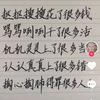 抠抠搜搜花了很多钱
骂骂咧咧干了很多活
机机灵灵上了很多当
认认真真上了很多话
掏心掏肺得罪很多人